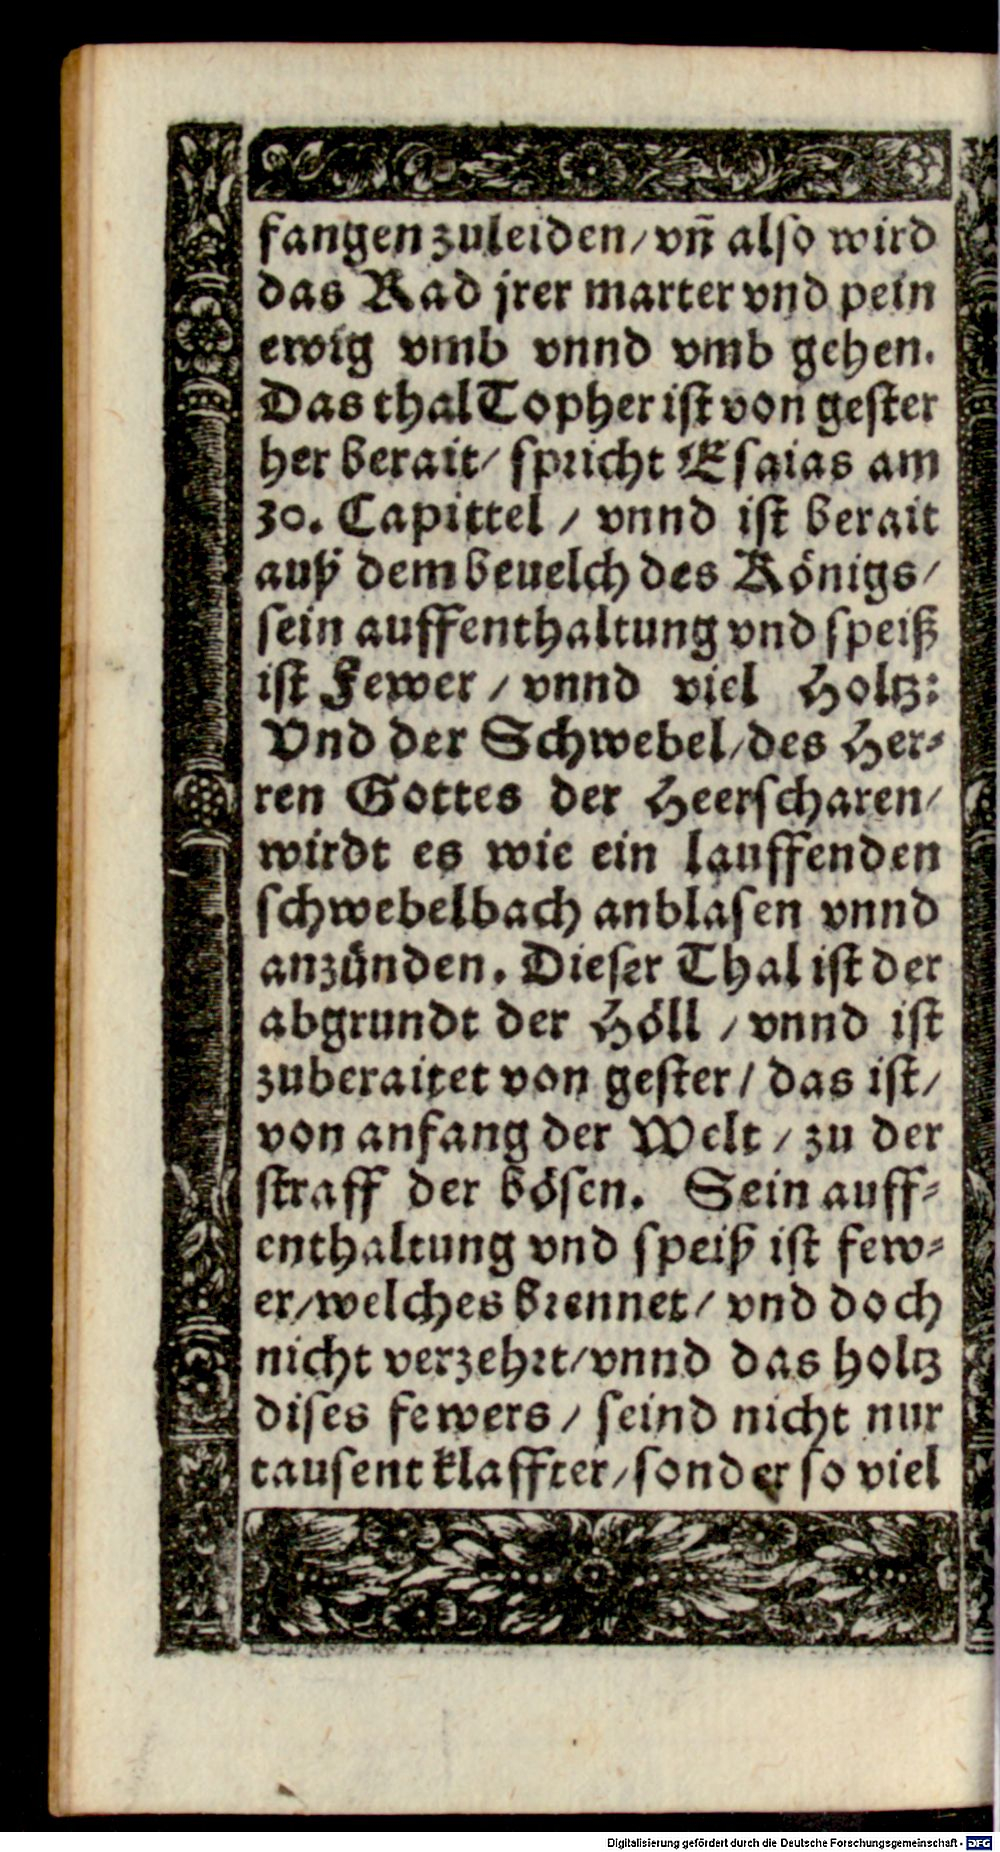 fangen zuleiden/ vñ also wird
das Rad jrer marter vnd pein
ewig vmb vnnd vmb gehen.
Das thal Topher ist von gester
her berait/ spricht Esaias am
30. Capittel / vnnd ist berait
auß dem beuelch des Königs/
sein auffenthaltung vnd speiß
ist Fewer / vnnd viel Holtz:
Vnd der Schwebel/des Her-
ren Gottes der Heerscharen/
wirdt es wie ein lauffenden
schwebelbach anblasen vnnd
anzünden. Dieser Thal ist der
abgrundt der Höll / vnnd ist
zuberaitet von gester/ das ist/
von anfang der Welt / zu der
straff der bösen. Sein auff-
enthaltung vnd speiß ist few-
er/welches brennet/ vnd doch
nicht verzehrt/vnnd das holtz
dises fewers / seind nicht nur
tausent klaffter/sonder so viel
Digitalisierung gefördert durch die Deutsche Forschungsgemeinschaft - DFG